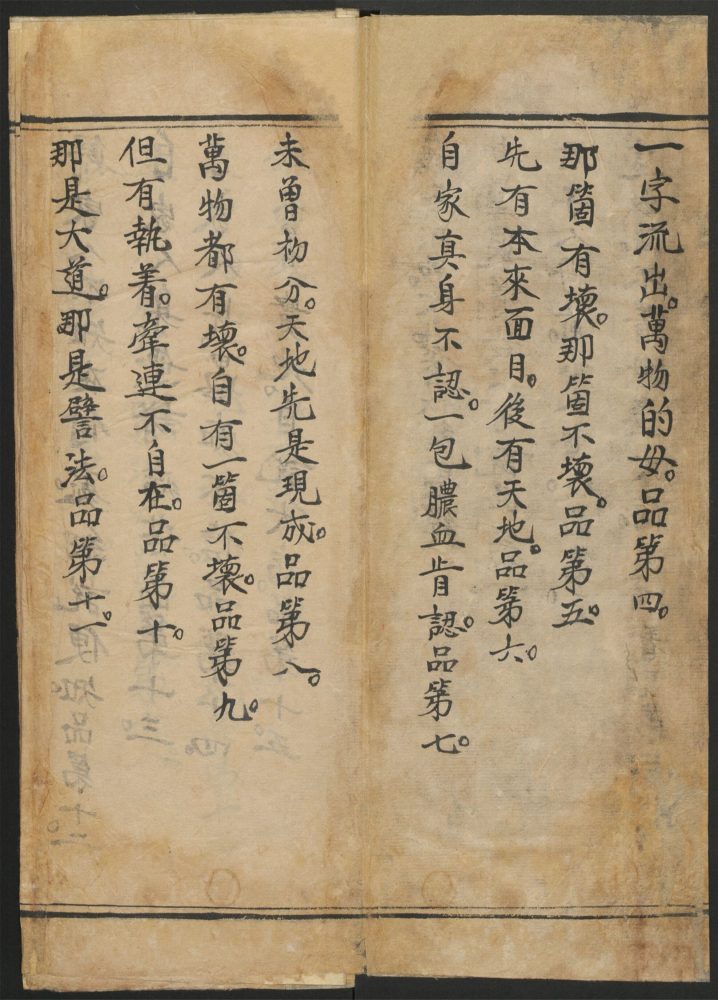 一字流出。萬物的母。品第四。
那箇有壞。那箇不壞。品第五。
先有本來面目。後有天地。品第六。
自家真身不認。一包膿血肯認。品第七。
未曾初分。天地先是現成。品第八。
萬物都有壞。自有一箇不壞。品第九。
但有執着。牽連不自在。品第十。
那是大道。那是譬法。品第十一。